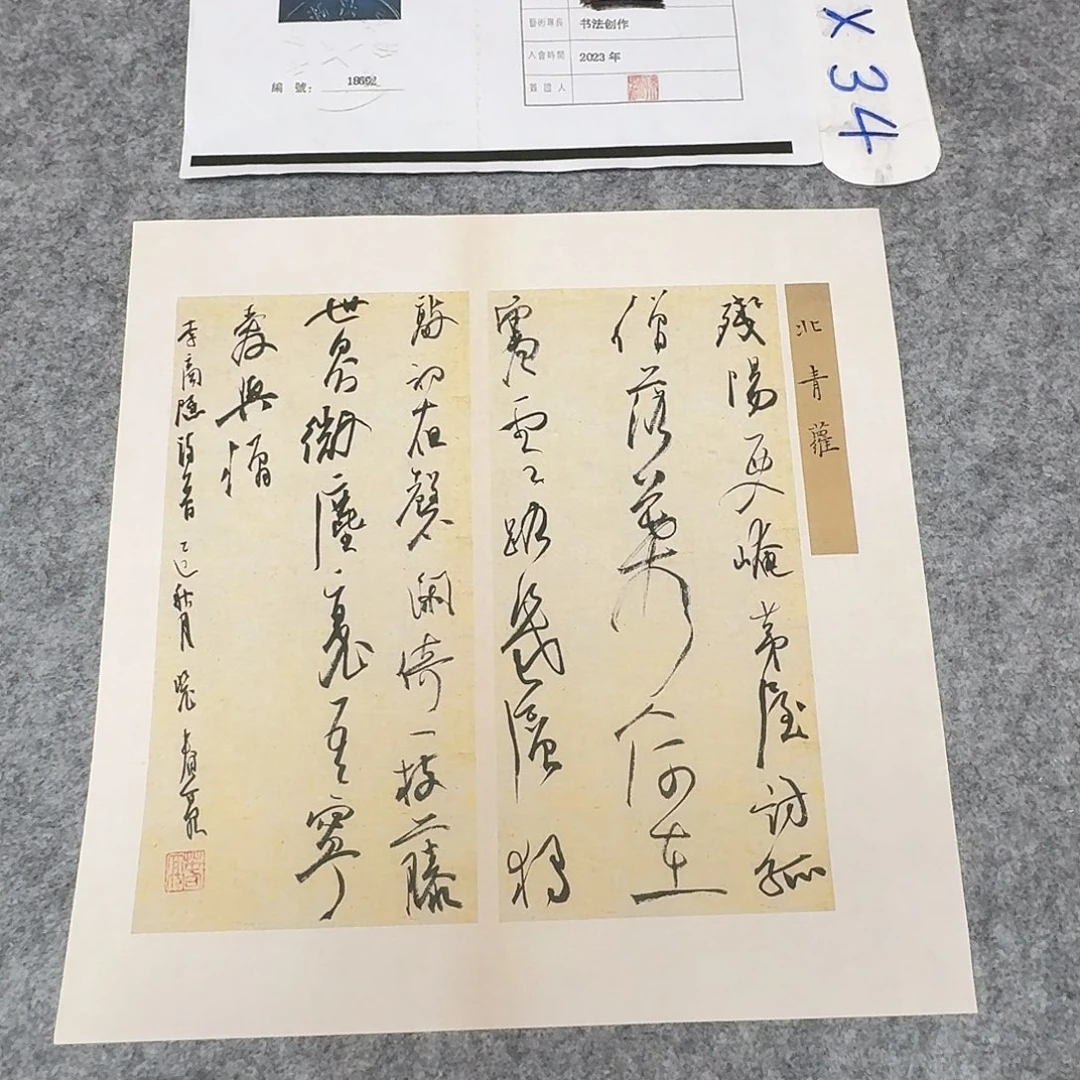 藝術專長 书法创作
入會時間 2023年
簽證人
編號: 18692
X34
北青蘿
殘陽西入崦茅屋訪孤
僧落葉人何在
寒雲路幾層獨
敲初夜磬閑倚一枝藤
世界微塵裏吾寧
愛與憎
李商隱詩一首 乙巳秋月